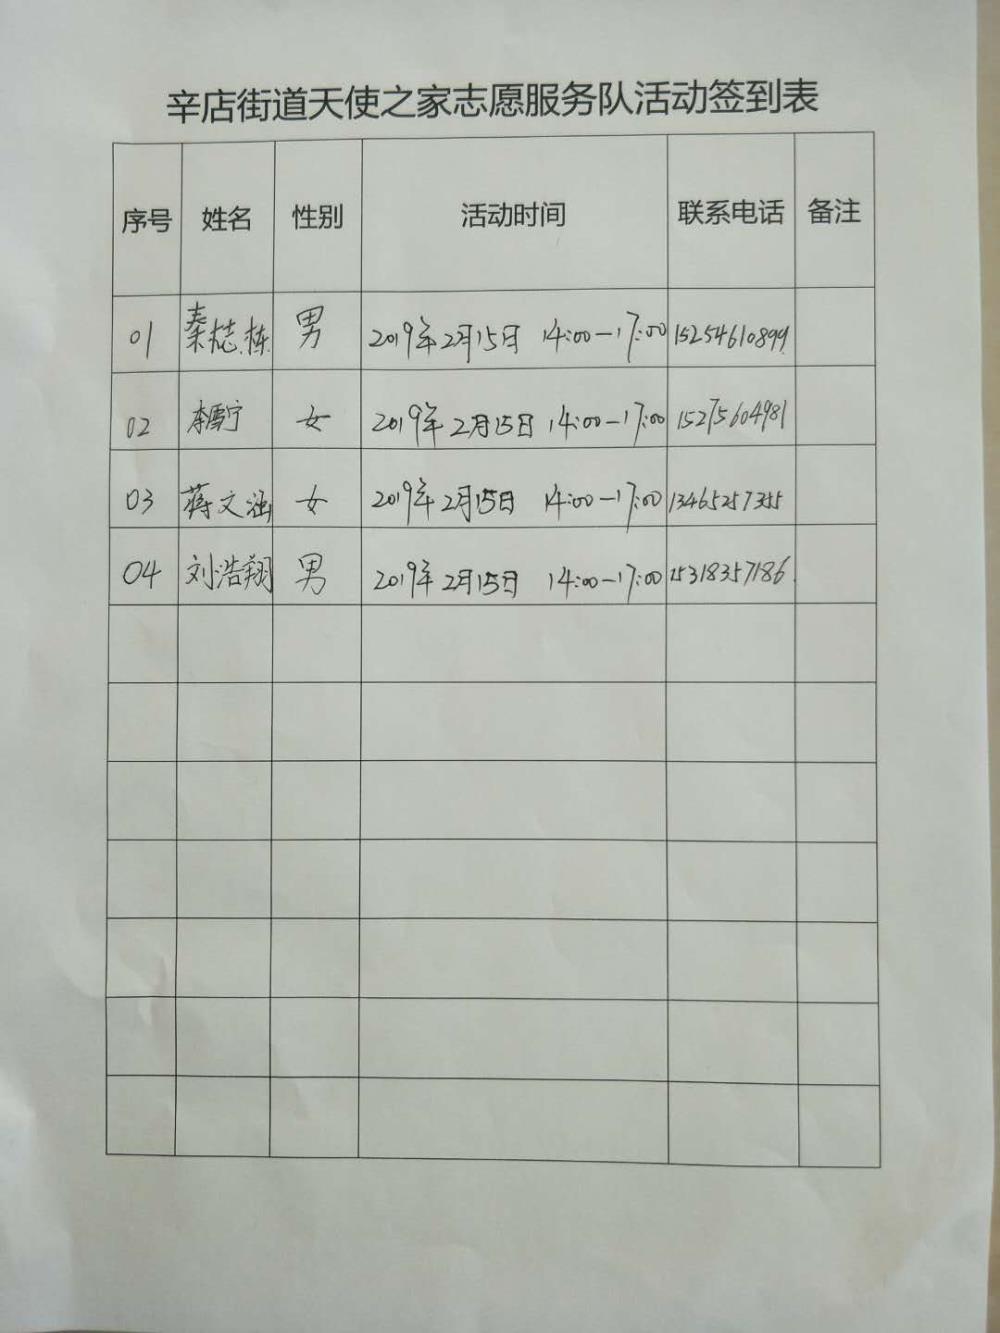 辛店街道天使之家志愿服务队活动签到表
序号 姓名 性别 活动时间 联系电话 备注
01 秦志栋 男 2019年2月15日 14:00-17:00 15254610899
02 李雪宁 女 2019年2月15日 14:00-17:00 15275604981
03 蒋文涵 女 2019年2月15日 14:00-17:00 13465257355
04 刘浩翔 男 2019年2月15日 14:00-17:00 15318357186